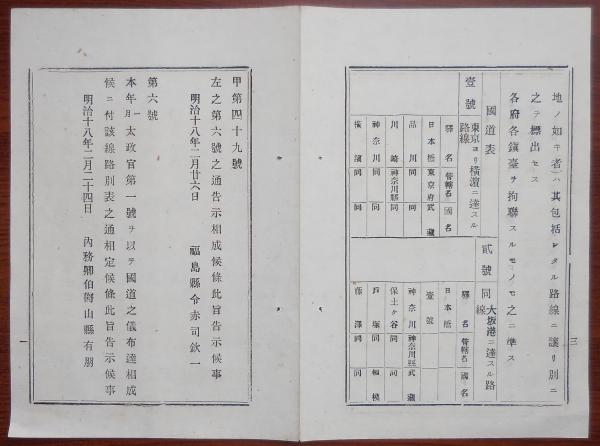 三
地ノ如キ者ハ其包括シタル路線ニ譲リ別ニ
之ヲ標出セス
各府各鎮臺ヲ拘聯スルモノモ之ニ準ス
國道表
壹號 東京ヨリ横濱ニ達スル路線
驛名 管轄名 國名
日本橋 東京府 武藏
品川 同 同
川崎 神奈川縣 同
神奈川 同 同
横濱 同 同
貳號 同大坂港ニ達スル路線
驛名 管轄名 國名
日本橋
壹號
神奈川 神奈川縣 武藏
保土ヶ谷 同 同
戸塚 同 相模
藤澤 同 同
甲第四十九號
左之第六號之通告示相成候條此旨告示候事
明治十八年二月廿六日 福島縣令赤司欽一
第六號
本年一月太政官第一號ヲ以テ國道之儀布達相成
候ニ付該線路別表之通相定候條此旨告示候事
明治十八年二月二十四日 內務卿伯爵山縣有朋
一